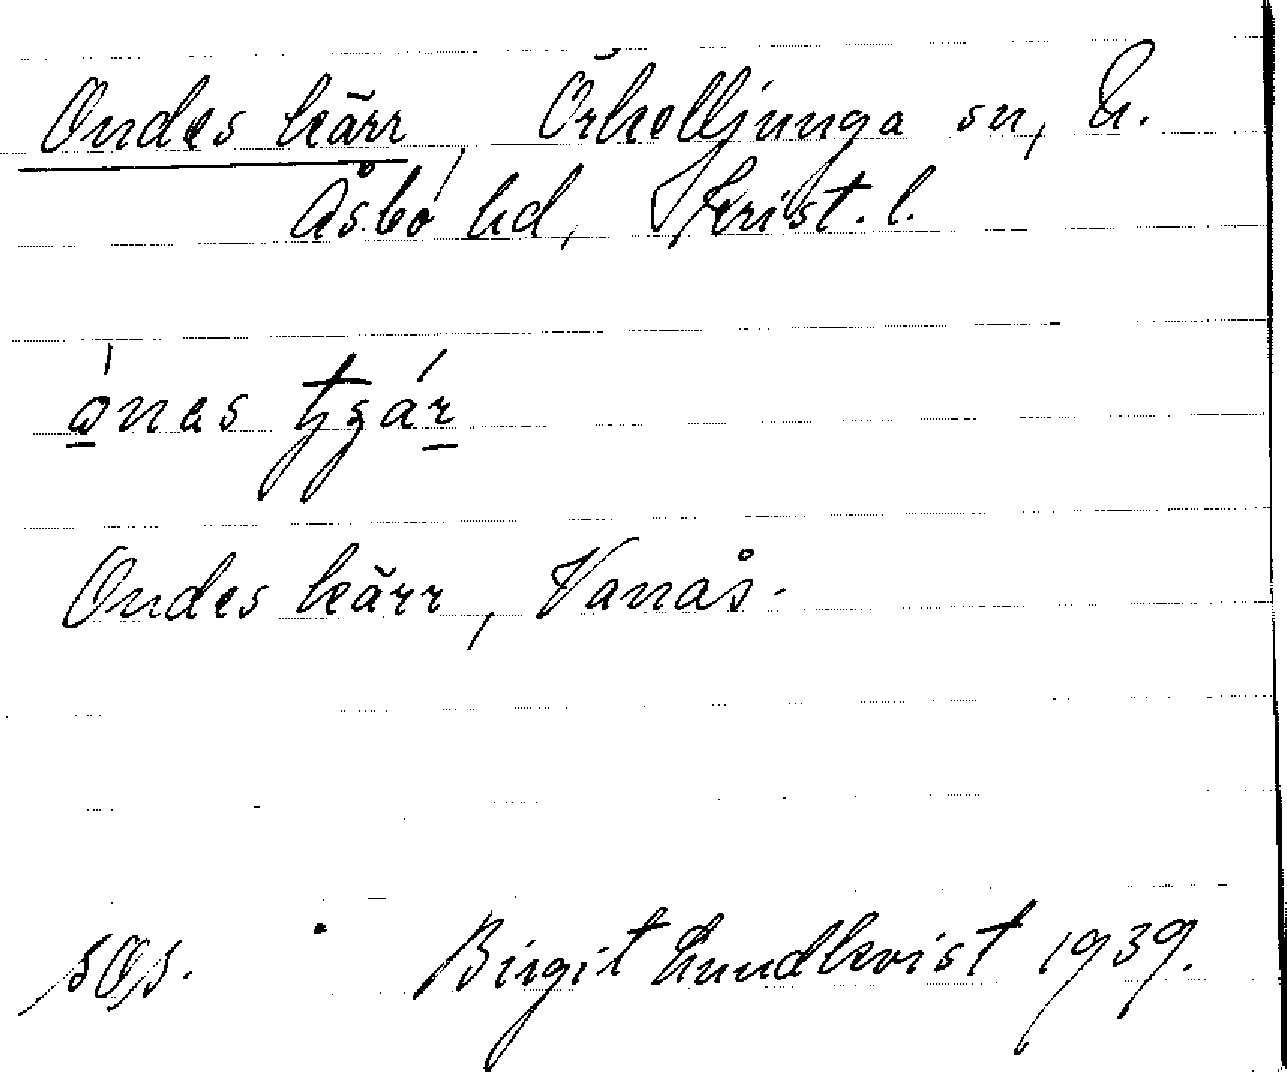 Ondes kärr, Örkelljunga sn, N.
Åsbo hd, Krist. l.
ónes kärr
Ondes kärr, Vanås.
Birgit Lundkvist 1939.